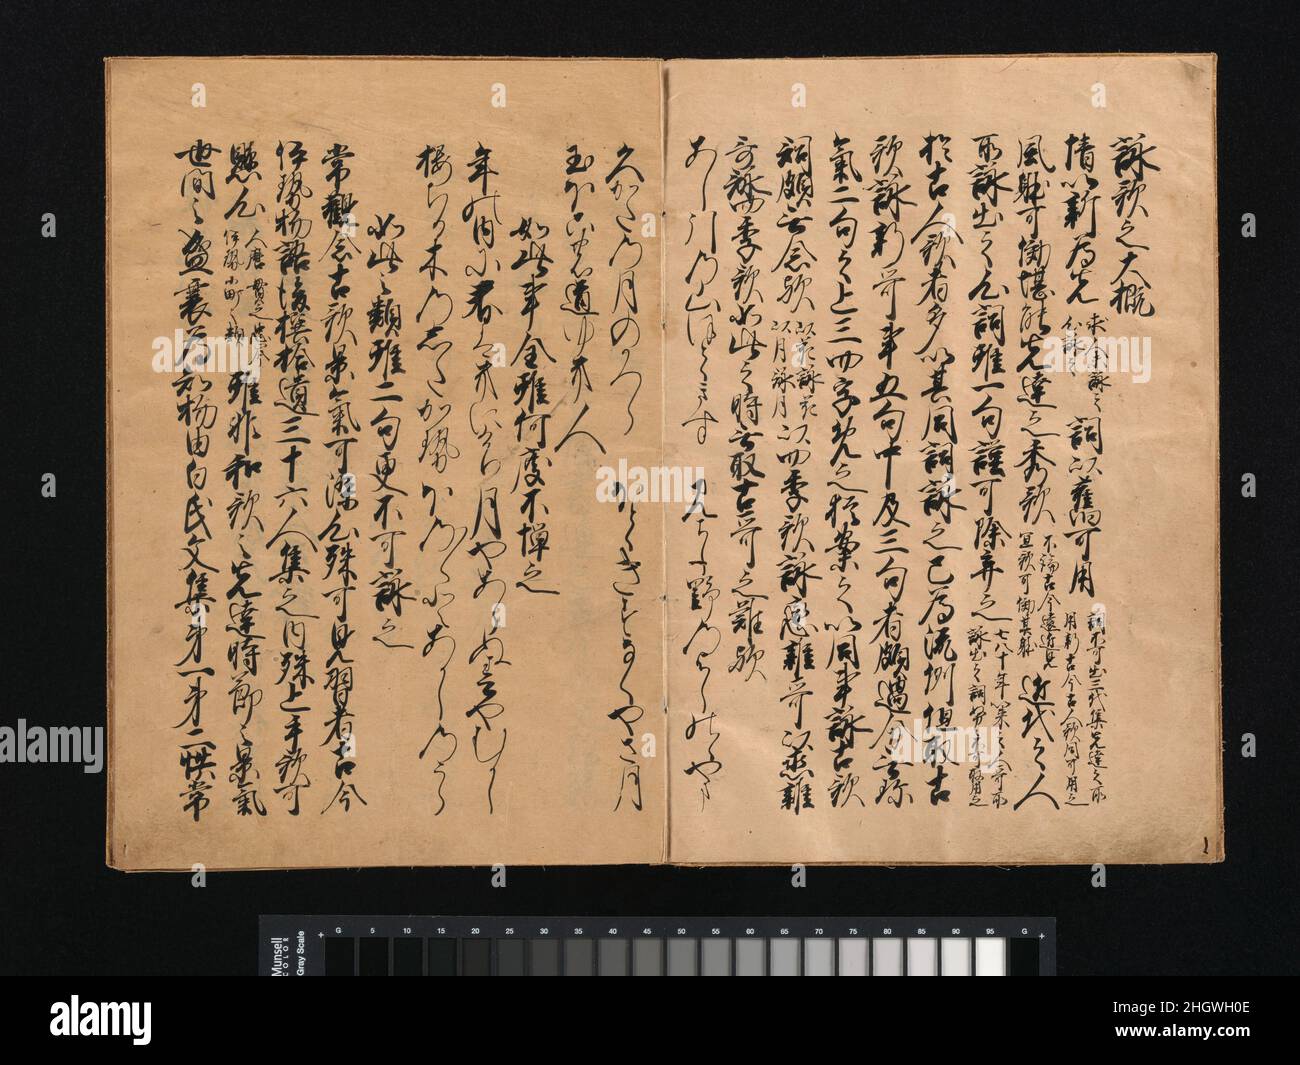 詠歌之大概
情以新為先 求人未詠之心詠之 詞以舊可用 詞不可出三代集先達之所用新古今古人歌同可用之
風躰可効堪能先達之秀歌 不論古今遠近見宜歌可効其躰 近代之人
所詠出之心詞雖一句謹可除弃之 七八十年以来之人哥所詠出之詞努々不可取用之
於古人歌者多以其同詞詠之已為流例但取古
歌詠新哥事五句中及三句者頗過分無珎
氣二句之上三四字免之猶案之以同事詠古歌
詞頗無念歟 以花詠花以月詠月 以四季歌詠戀雜哥以戀雜
哥詠四季歌如此之時無取古哥之難歟
あし引の山ほとゝきす みよし野のよしのゝやま
久かたの月のかつら ほとゝきすなくやさ月
玉ほこの道ゆき人
如此事全雖何度不憚之
年の内に春はきにけり 月やあらぬ春やむかし
桜ちる木のした かせ ほの〳〵とあかしのうら
如此之類雖二句更不可詠之
常觀念古歌景氣可染心殊可見習者古今
伊勢物語後撰拾遺三十六人集之内殊上手歌可
懸心 人麿貫之忠岑伊勢小町之類 雖非和歌之先達時節之景氣
世間之盛衰為知物由白氏文集第一第二帙常
Munsell
COLOR
Gray Scale
G 0 5 10 15 20 25 30 35 40 45 50 55 60 65 70 75 80 85 90 95 G
a alamy
alamy
Image ID: 2HGWH0E
www.alamy.com